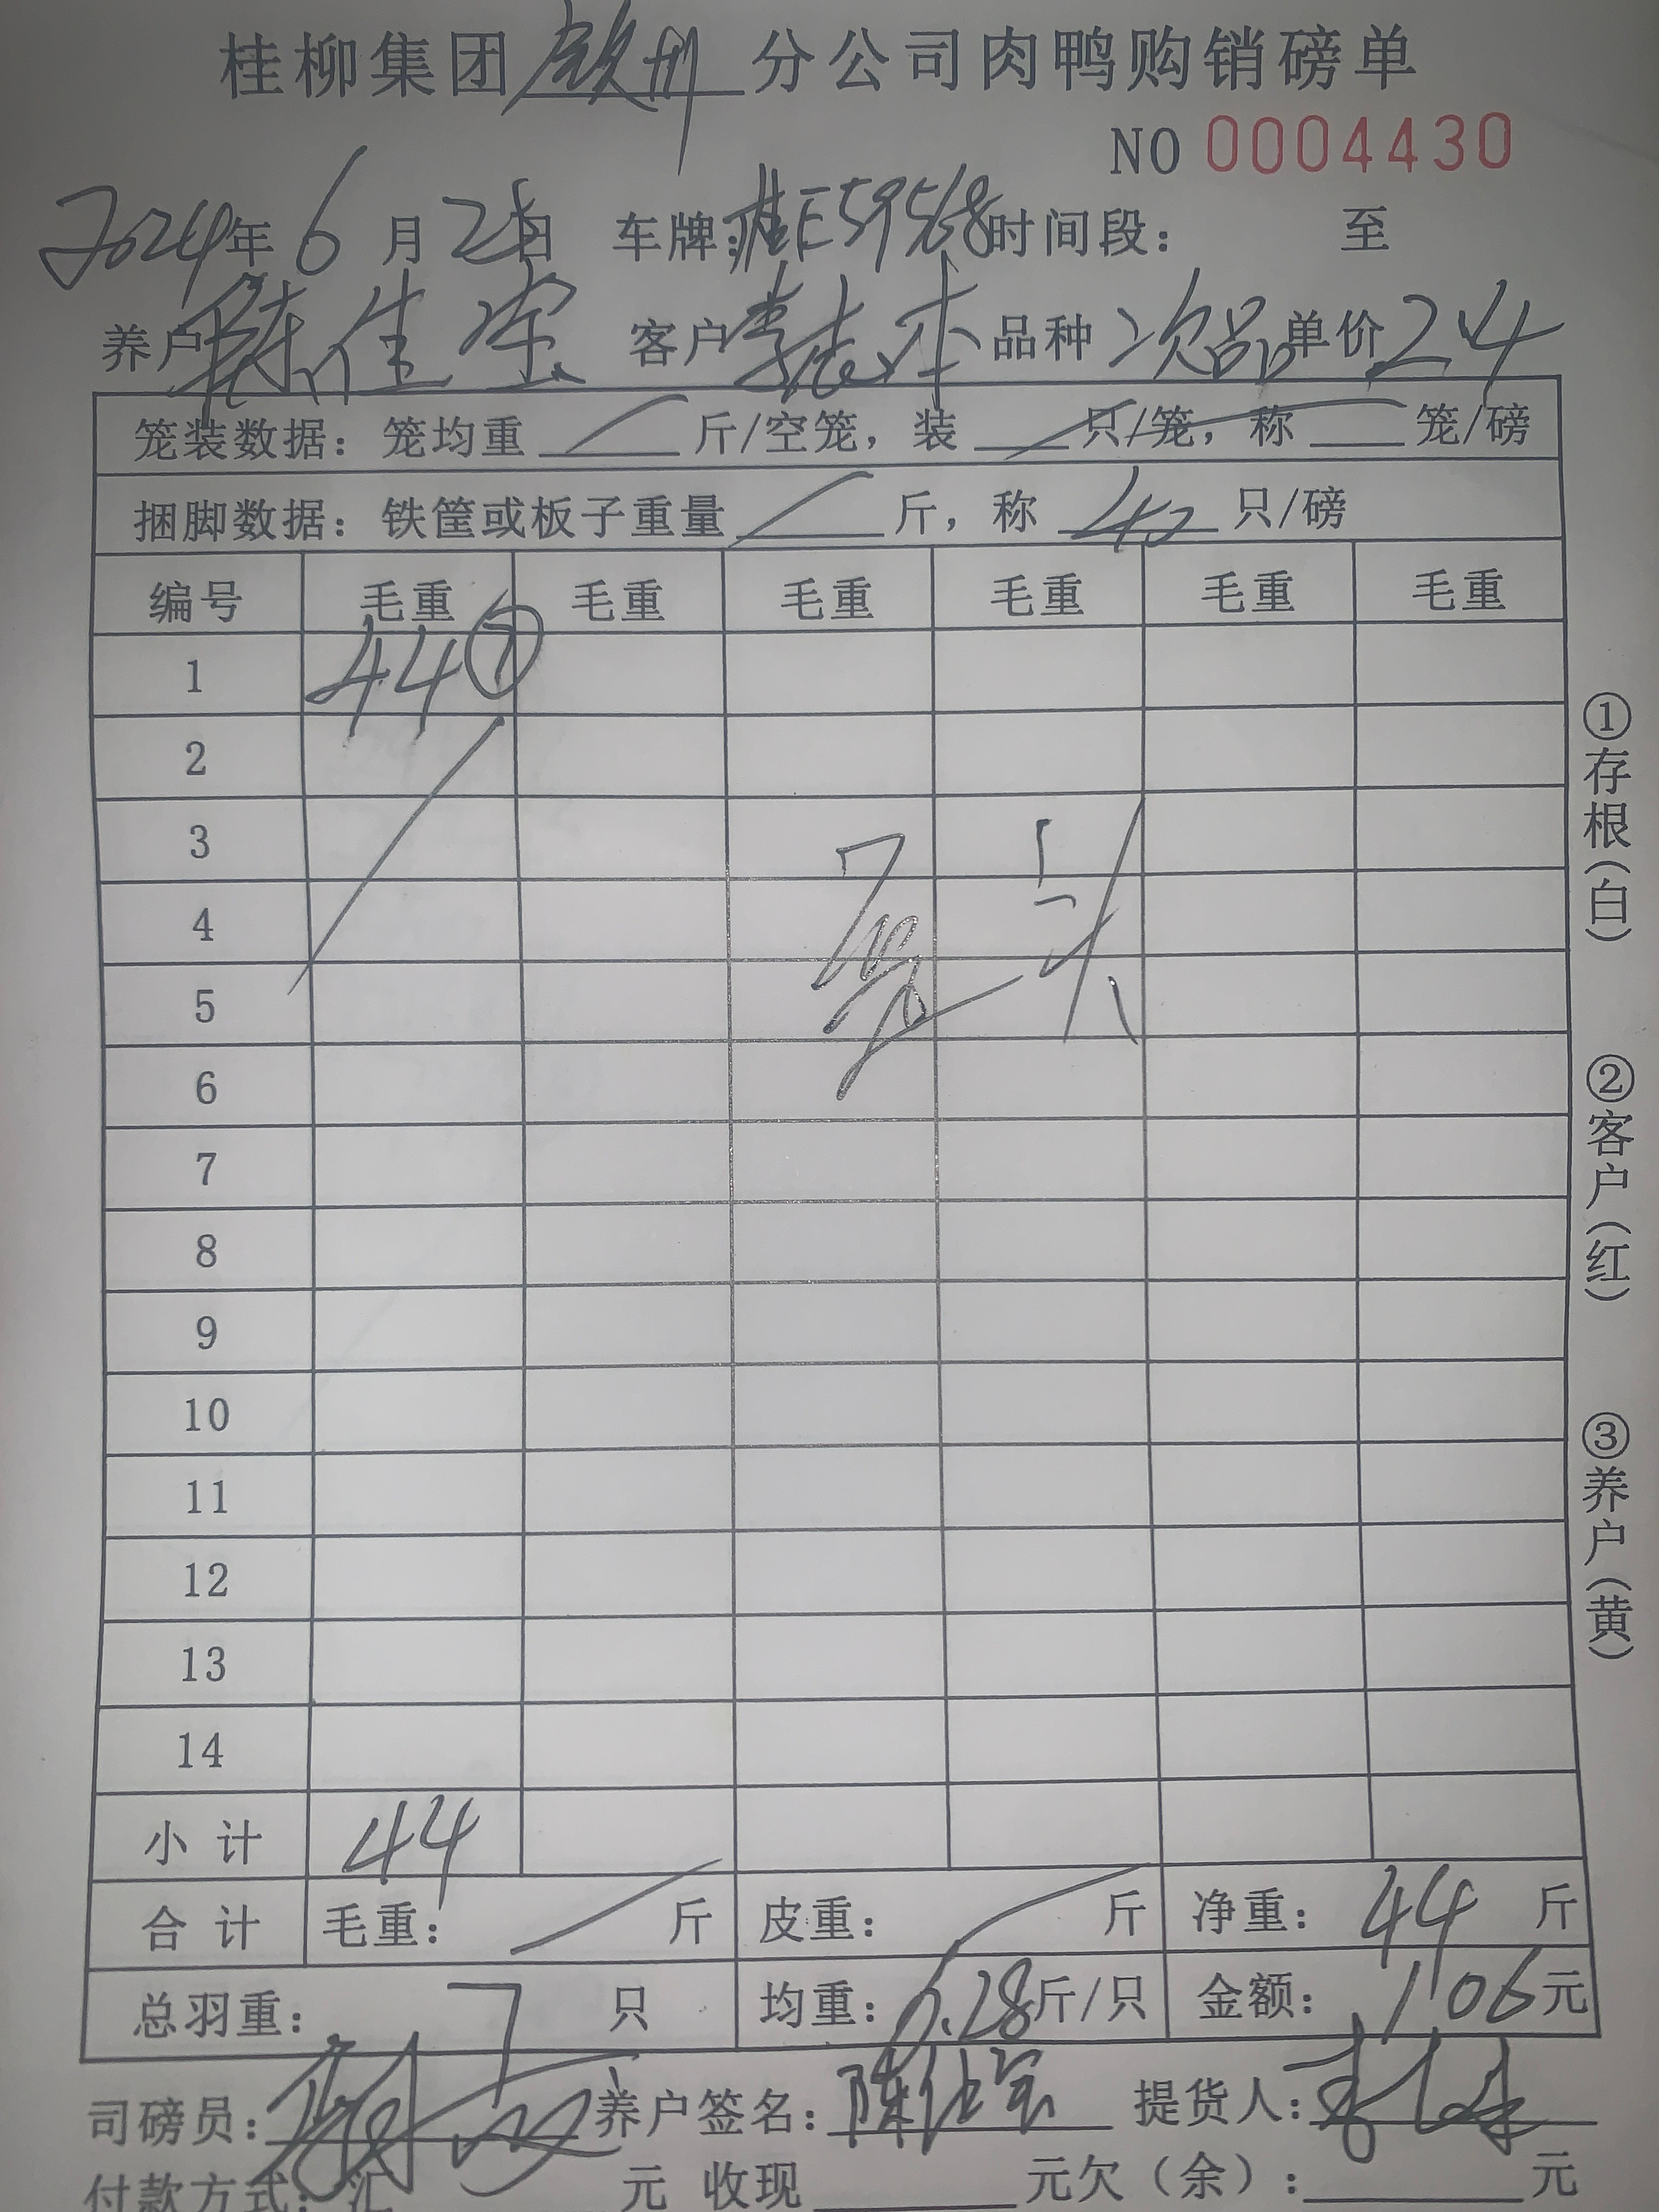 桂柳集团钦州分公司肉鸭购销磅单
NO 0004430
2024年 6月 25日 车牌:桂E59568 时间段: 至
养户 陈佳宝 客户 李志本 品种 次品 单价 2.4
笼装数据: 笼均重 斤/空笼, 装 只/笼, 称 笼/磅
捆脚数据: 铁筐或板子重量 斤, 称 只/磅
编号 毛重 毛重 毛重 毛重 毛重 毛重
1 44 ⑦
2
3
4
5
6
7
8
9
10
11
12
13
14
小计 44
合计 毛重: 斤 皮重: 斤 净重: 44 斤
总羽重: 7 只 均重: 6.28 斤/只 金额: 106 元
司磅员: 养户签名: 陈佳宝 提货人:
付款方式: 汇 元 收现 元欠(余): 元
①存根(白)
②客户(红)
③养户(黄)